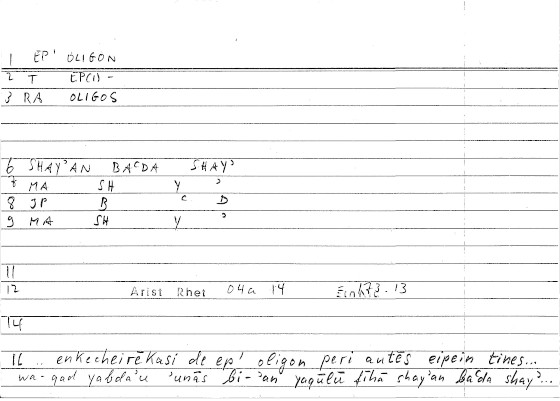 1 EP' OLIGON
2 T EP(I) -
3 RA OLIGOS
6 SHAYʾAN BAʿDA SHAYʾ
7 MA SH Y ʾ
8 JP B ʿ D
9 MA SH Y ʾ
11
12 Arist Rhet 04a 14 13
14
16 .. enkecheirēkasi de ep' oligon peri autēs eipein tines...
wa-qad yabdaʾu ʾunās bi-ʾan yaqūlū fīhā shayʾan baʿda shayʾ...